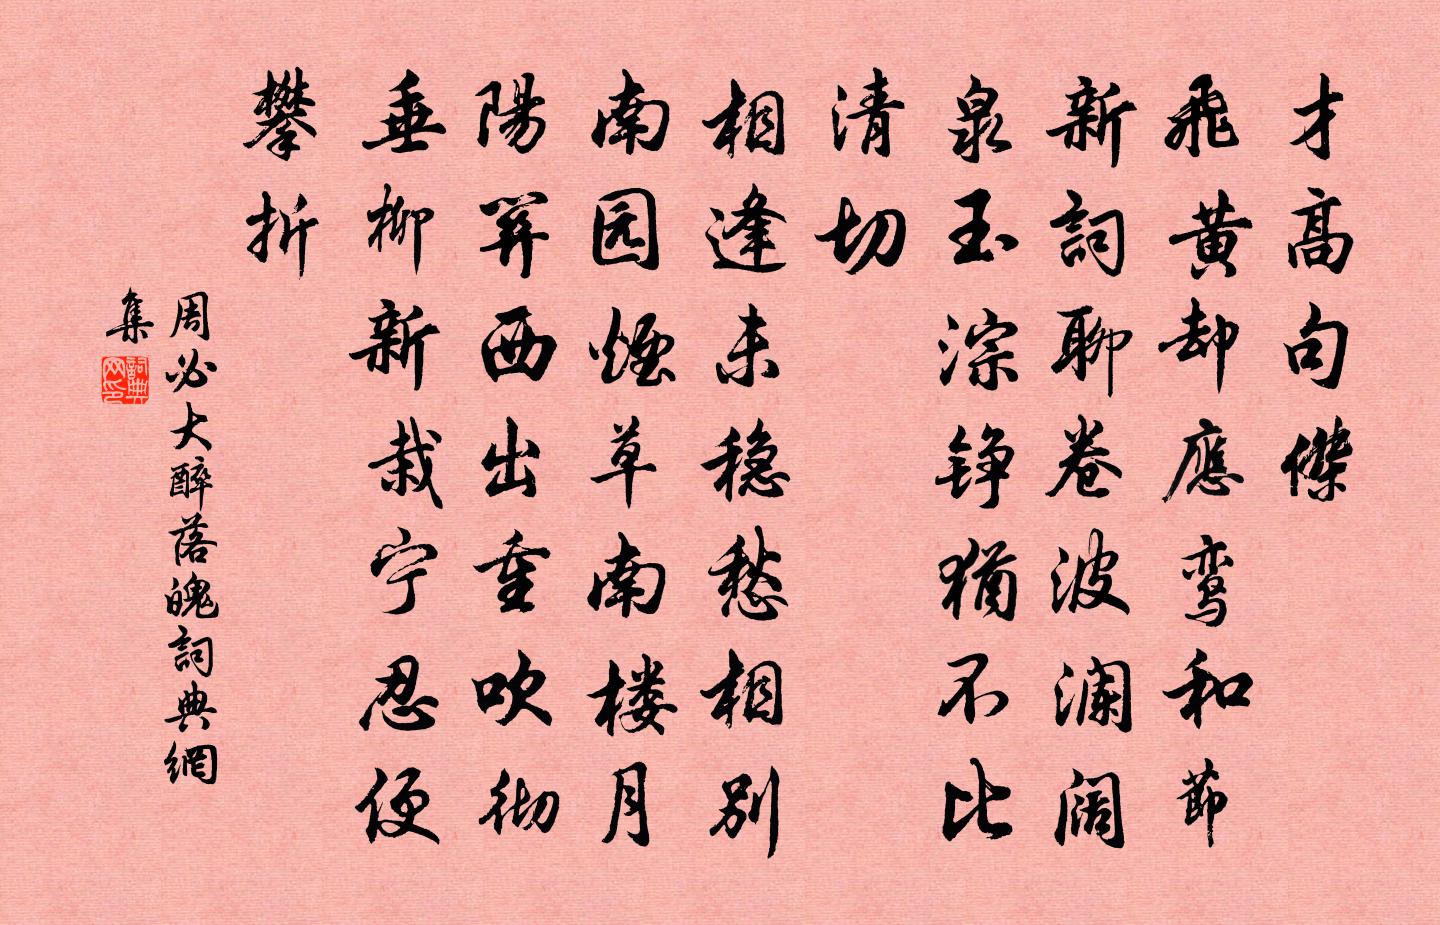 才高句傑
飛黃却應鸾和節
新詞聊卷波澜阔
泉玉淙铮猶不比
清切
相逢未穏愁相別
南园煙草南楼月
陽関西出重吹彻
垂柳新栽宁忍便
攀折
周必大醉落魄詞典網
集
詞典网印